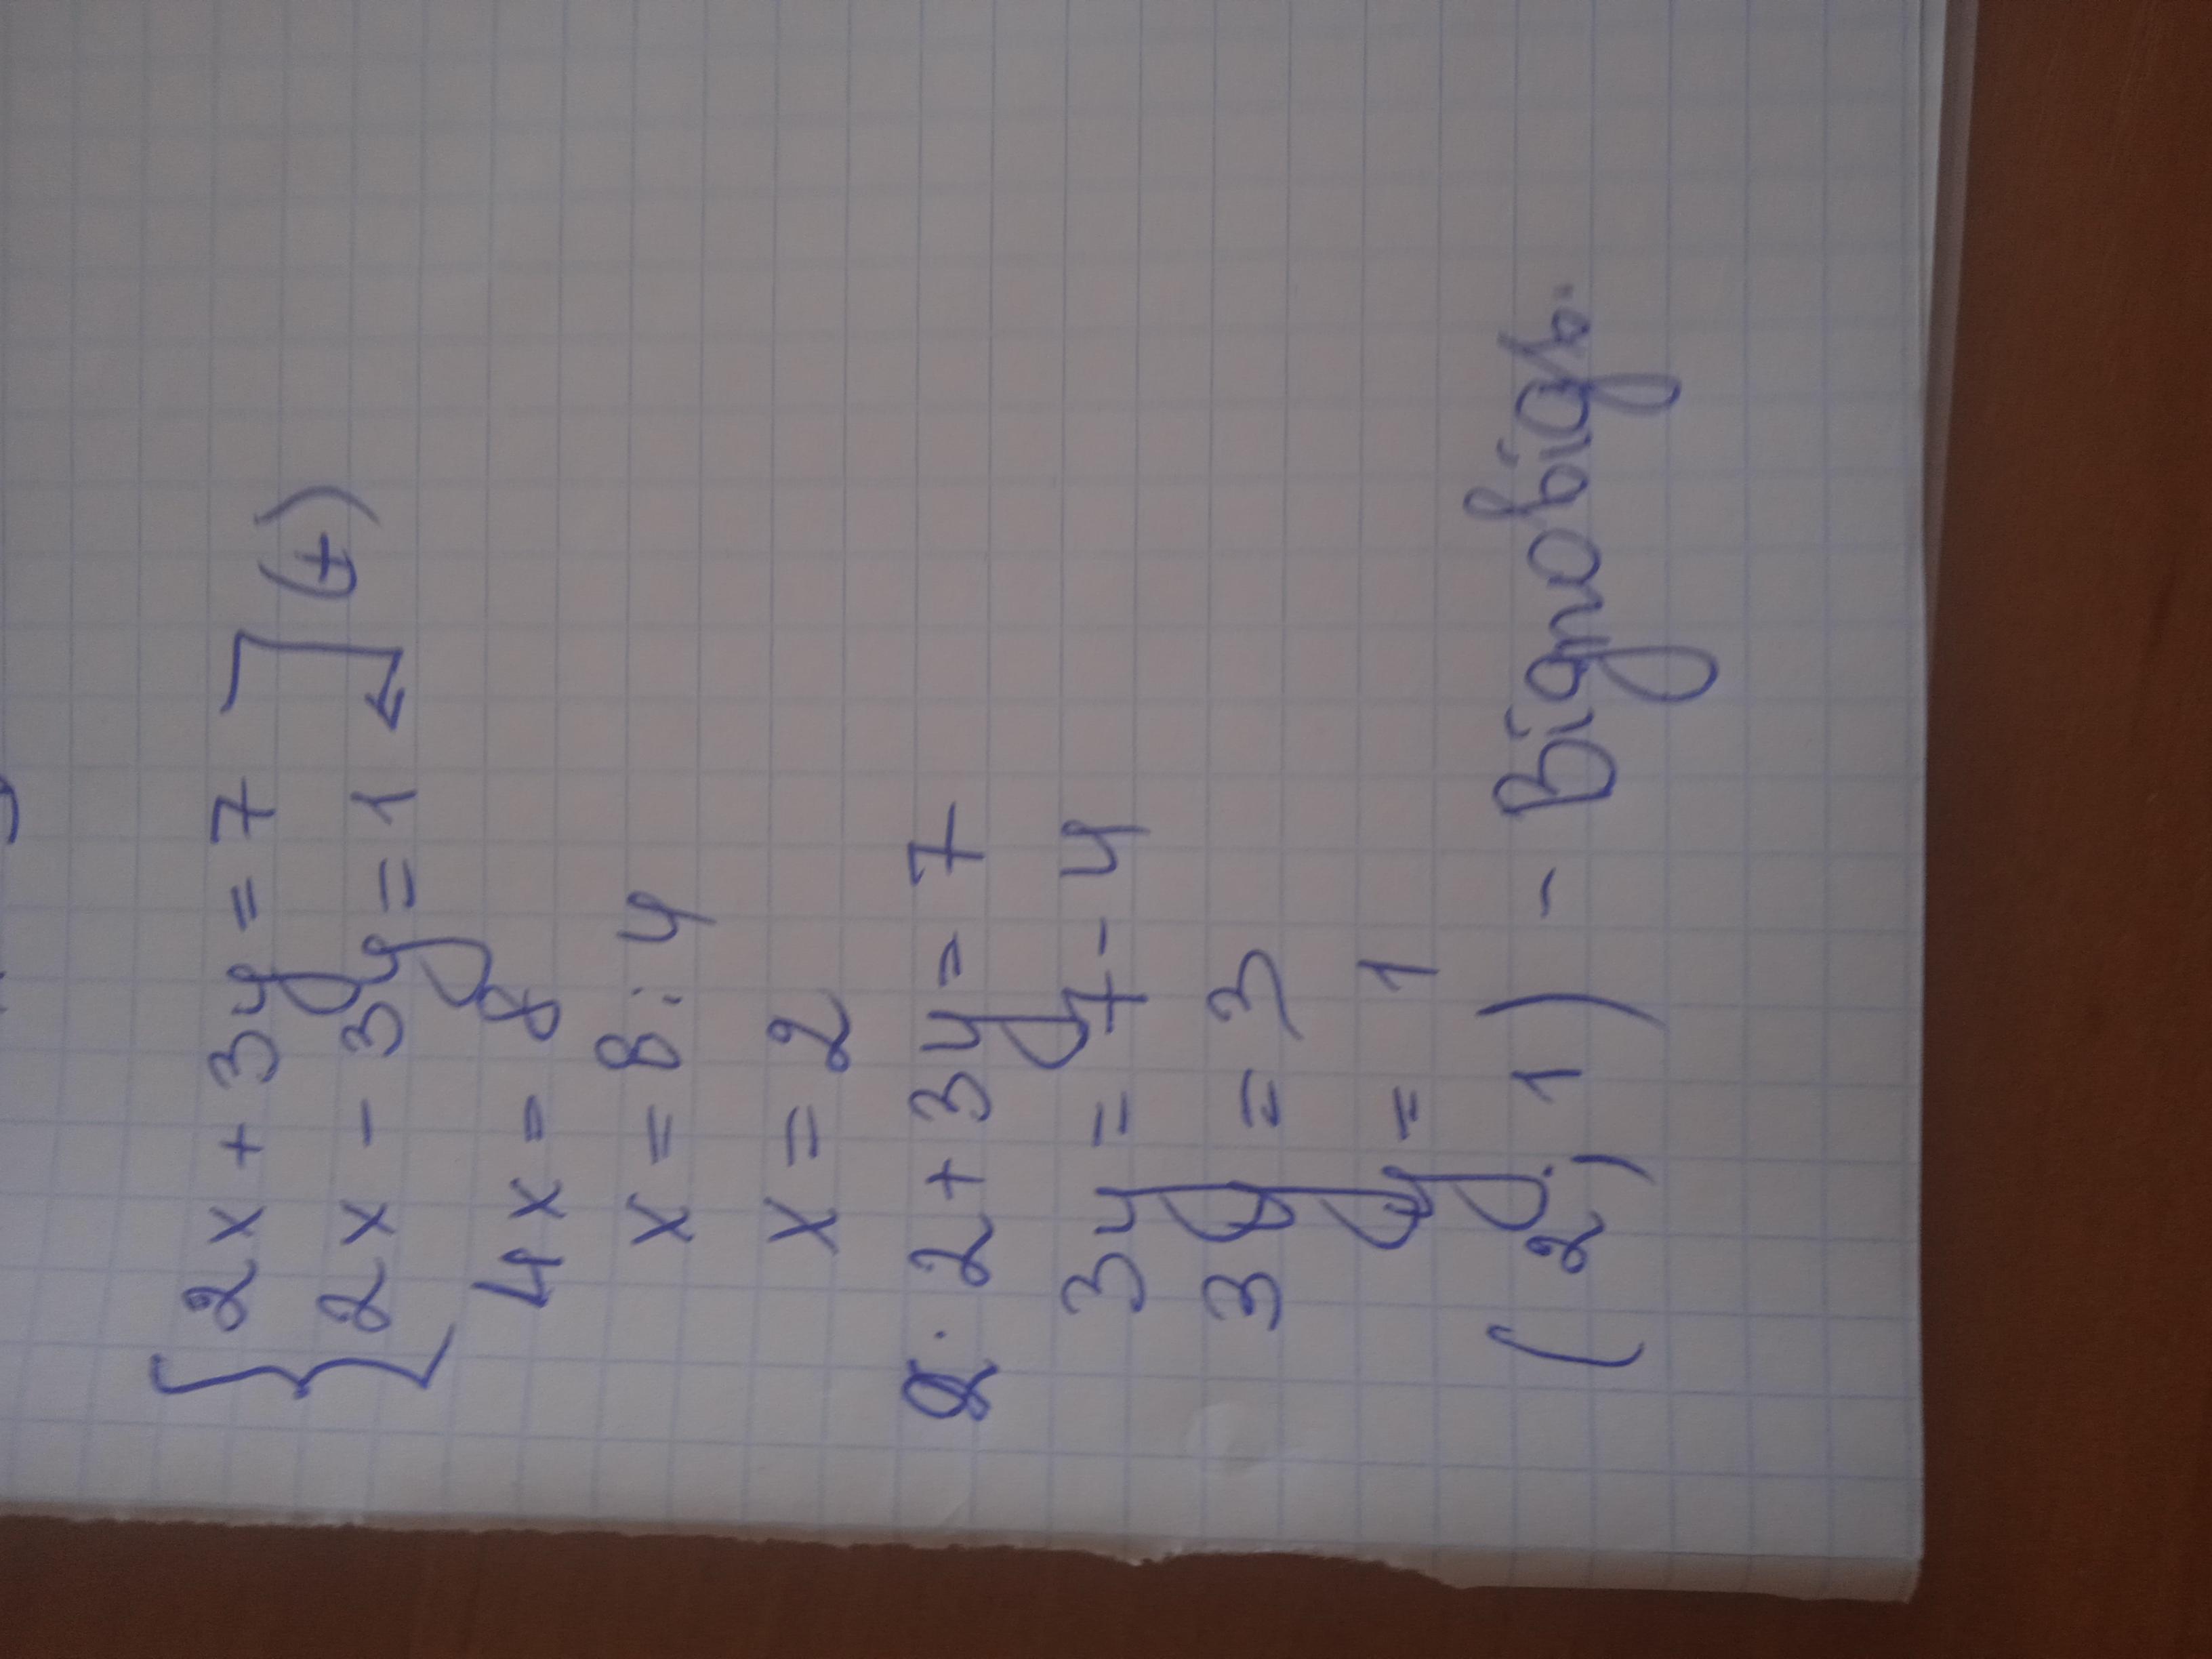 {2x + 3y = 7 ] (+)
{2x - 3y = 1
4x = 8
x = 8 : 4
x = 2
2 · 2 + 3y = 7
3y = 7 - 4
3y = 3
y = 1
(2; 1) - Відповідь.